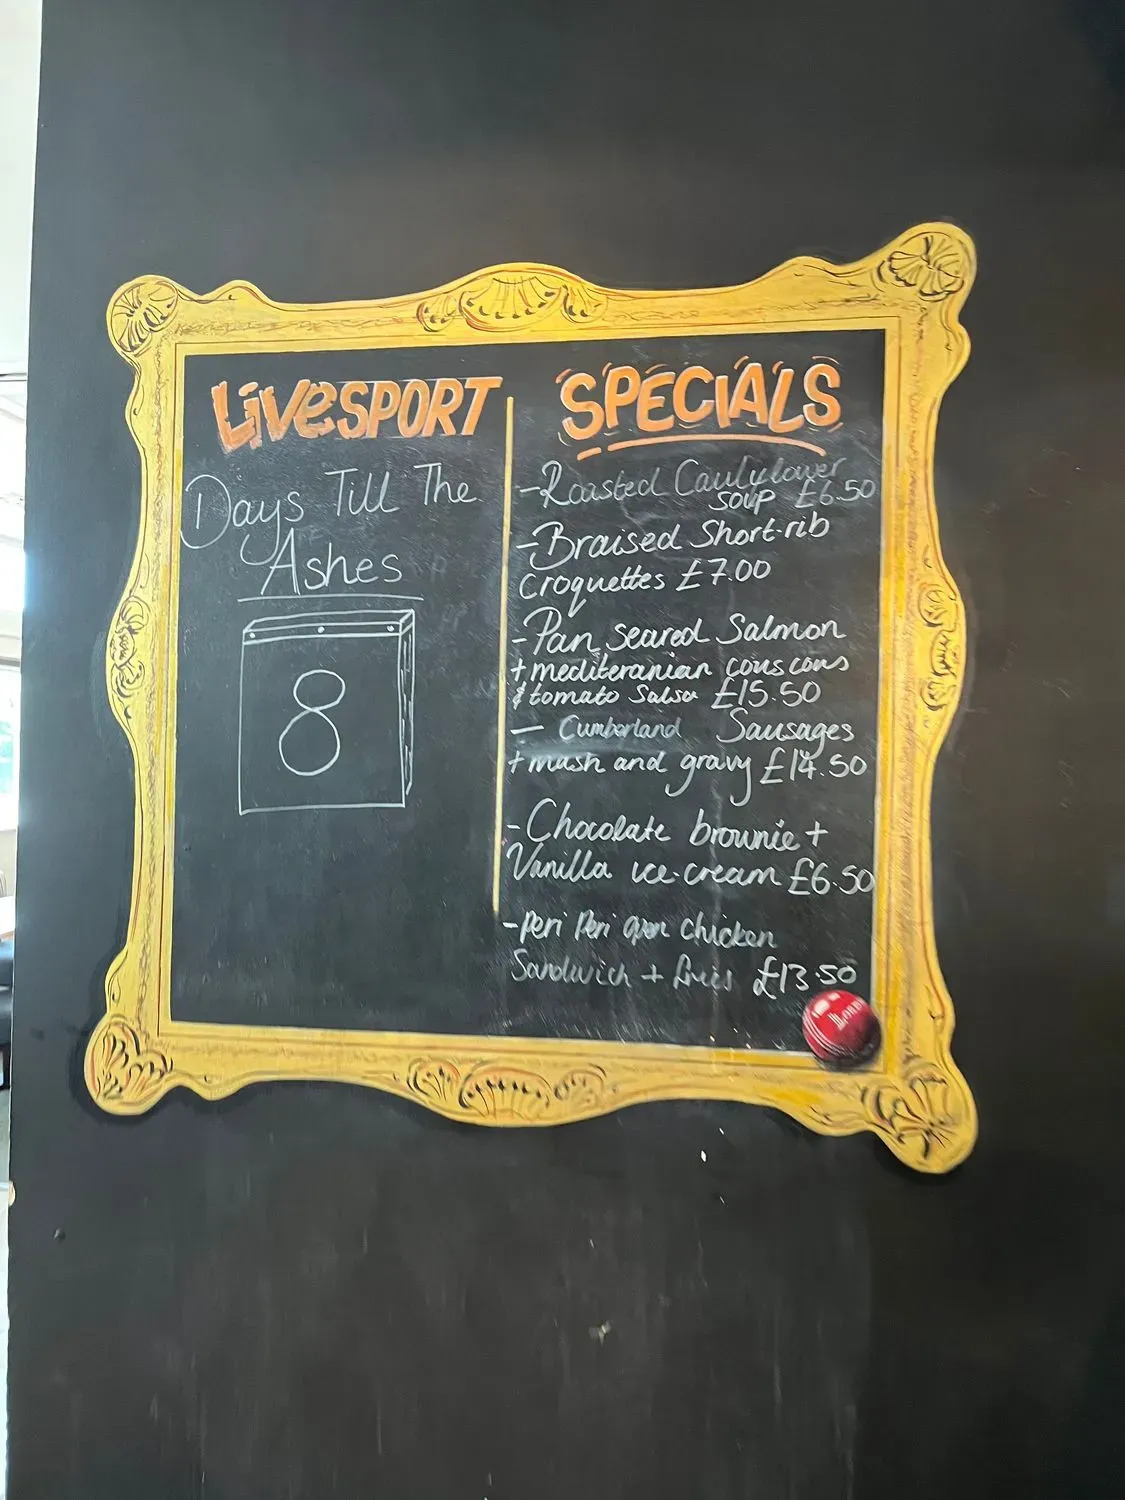 LiveSPORT
Days Till The
Ashes
8
SPECIALS
-Roasted Caulylower
soup £6.50
-Braised Short-rib
croquettes £7.00
-Pan seared Salmon
+mediteranian couscous
& tomato Salsa £15.50
- Cumberland Sausages
+ mash and gravy £14.50
-Chocolate brownie +
Vanilla ice-cream £6.50
-peri Peri chicken
Sandwich + fries £13.50